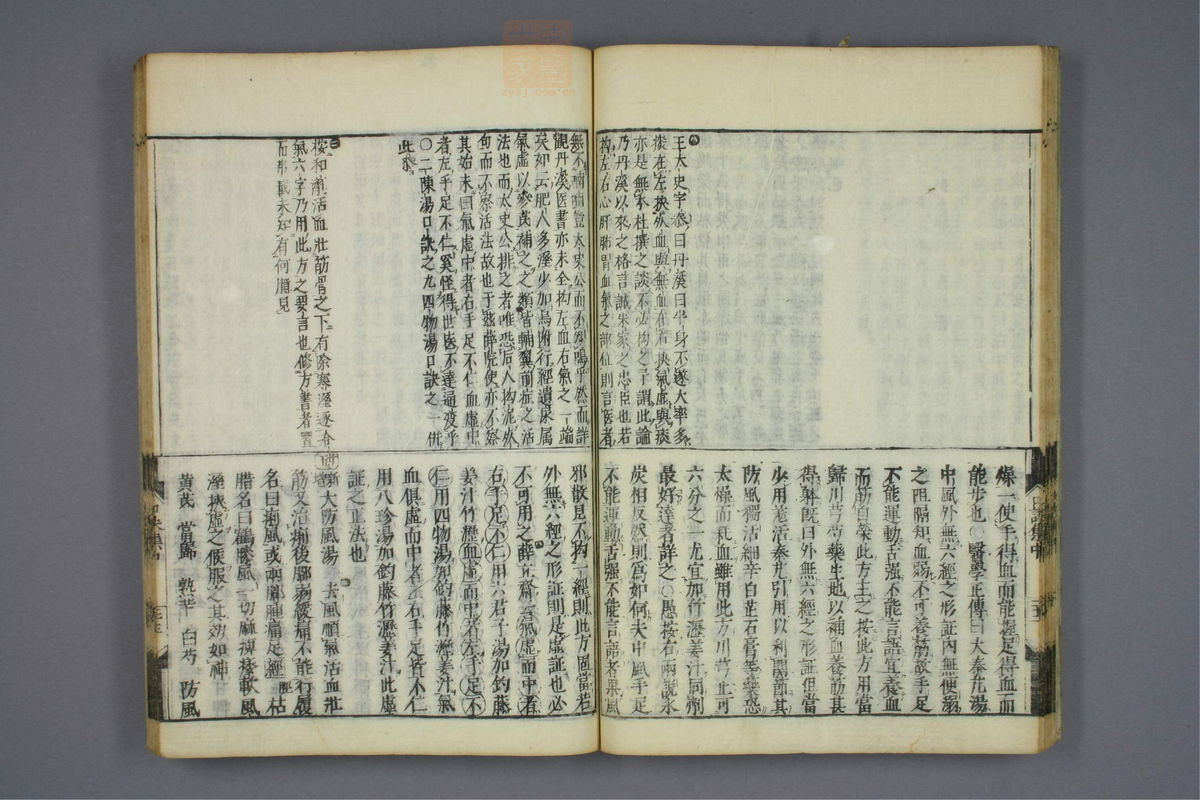 王太史字泰曰丹溪曰半身不遂大率多
痰在左挾死血與無血在右挾氣虛與痰
亦是無本杜撰之談不必拘之予謂此論
乃丹溪以來之格言誠朱家之忠臣也若
拘左右心肝肺胃血氣之部位則言医者
燥一使手得血而能握足得血而
能步也○醫學正傳曰大秦艽湯
中風外無六經之形証內無便溺
之阻隔知血弱不可養筋故手足
不能運動舌强不能言語宜養血
而筋自榮此方主之按此方用當
歸川芎芍藥生地以補血養筋甚
得躰既曰外無六經之形証但當
少用羗活秦艽引用以利關節其
防風獨活細辛白芷石膏等藥恐
太燥而耗血雖用此方川芎止可
六分之一尤宜加竹瀝姜汁同劑
最好達者詳之○愚按右兩說氷
炭相反然則爲如何夫中風手足
不能運動舌强不能言語者果風
無不喃喃豈太史公而不知焉乎然而詳
觀丹溪医書亦未全拘左血右氣之一端
矣如云肥人多溼少加烏附行經遺尿属
氣虛以參芪補之之類皆輔翼前症之活
法也而太史公排之者唯恐后人拘泥於
句而不察活法故也于玆薛院使亦不察
其始末曰氣虛中者右手足不仁血虛中
者左手足不仁奚怪得世医不達逼波乎
○二陳湯口訣之九四物湯口訣之一併
此發
按和煎活血壯筋骨之下有除寒溼逐冷
氣六字乃用此方之要言也修方書者置
而帶載未知有何臆見
邪散見不拘一經則此方固當若
外無六經之形証則是虛証也必
不可用之薛立齋云氣虛而中者
右手足不仁用六君子湯加釣藤
姜汁竹瀝血虛而中者左手足不
仁用四物湯加釣藤竹瀝姜汁氣
血俱虛而中者左右手足皆不仁
用八珍湯加釣藤竹瀝姜汁此虛
証之正法也
新增大防風湯 去風順氣活血壯
筋又治痢後腳弱緩痛不能行履
名曰痢風或兩膝腫痛足經枯
腊名曰鶴膝風一切麻痺痿軟風
溼挾虛之候服之其効如神
黃芪 當歸 熟芐 白芍 防風